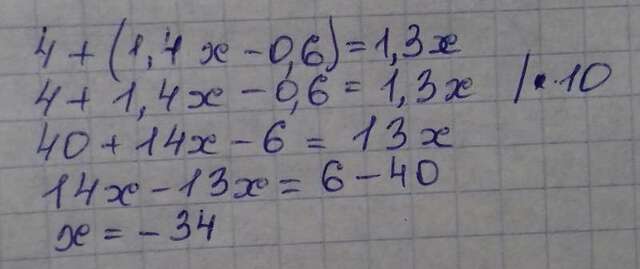 4 + (1,4x - 0,6) = 1,3x
4 + 1,4x - 0,6 = 1,3x / · 10
40 + 14x - 6 = 13x
14x - 13x = 6 - 40
x = - 34